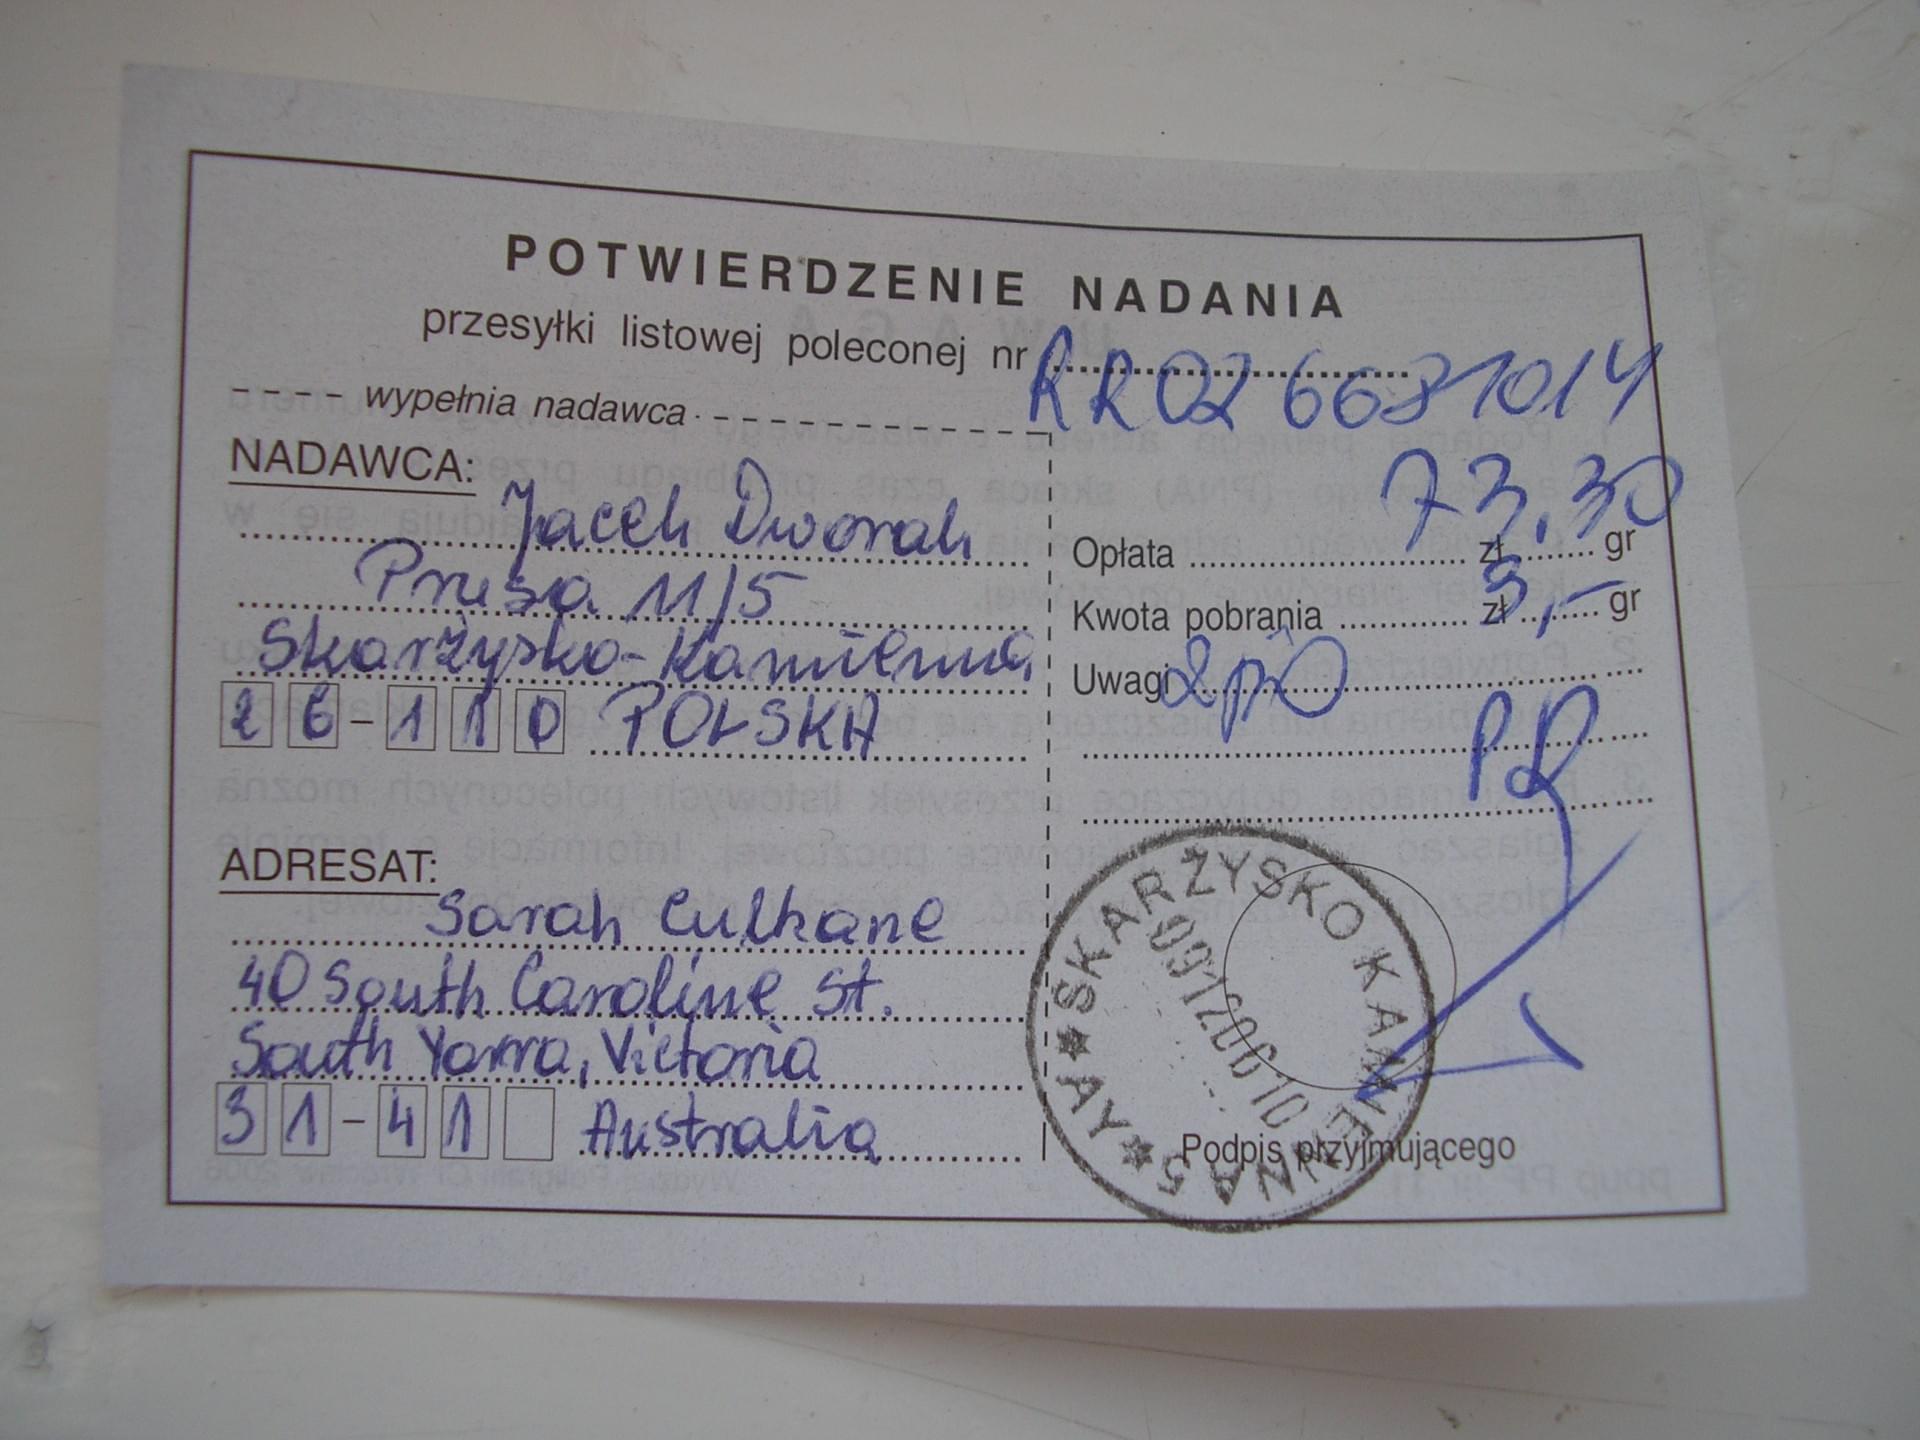 POTWIERDZENIE NADANIA
przesyłki listowej poleconej nr RR02 66871014
wypełnia nadawca
NADAWCA:
Jacek Dworak
Prusa 11/5
Skarżysko-Kamienna
26-110 POLSKA
ADRESAT:
Sarah Culkane
40 South Caroline St.
South Yarra, Victoria
31-41 Australia
73,30
Opłata zł gr
Kwota pobrania zł 3,- gr
Uwagi
PR
SKARŻYSKO KAMIENNA 5 * AY *
Podpis przyjmującego